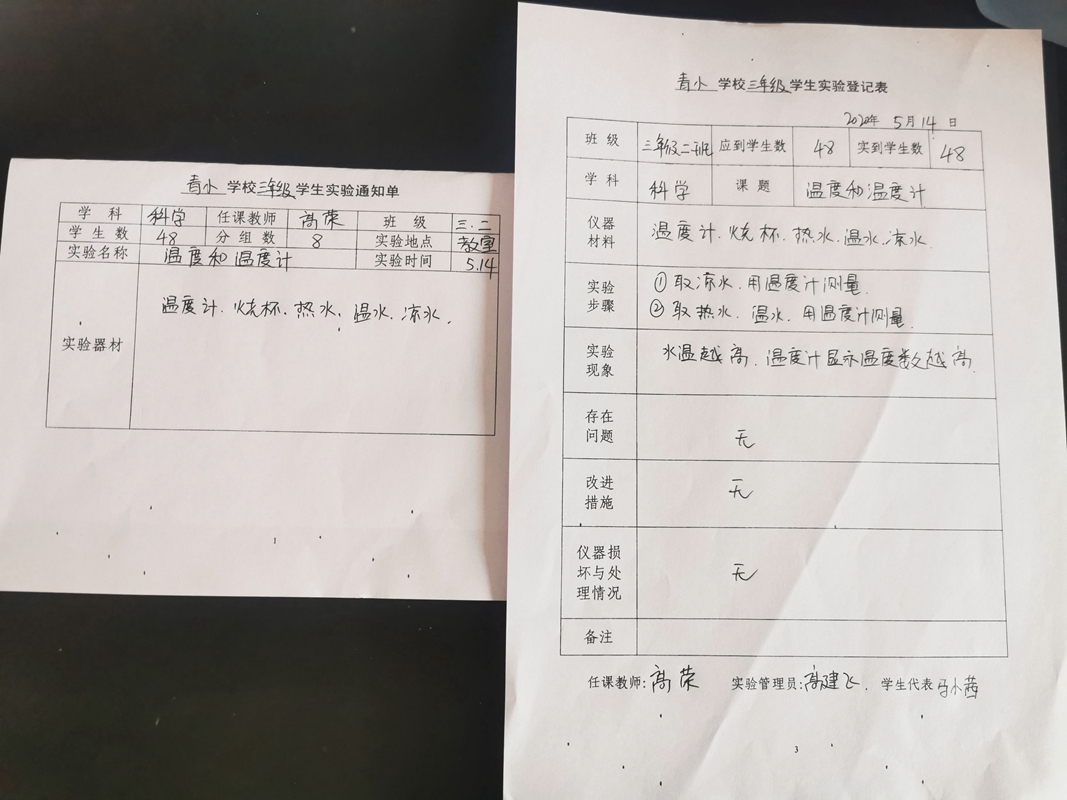 青小 学校三年级学生实验通知单
学 科 科学 任课教师 高荣 班 级 三.二
学 生 数 48 分 组 数 8 实验地点 教室
实验名称 温度和温度计 实验时间 5.14
实验器材 温度计.烧杯.热水.温水.冻水.
1
青小 学校三年级学生实验登记表
2020年 5月 14 日
班 级 三年级二班 应到学生数 48 实到学生数 48
学 科 科学 课 题 温度和温度计
仪器材料 温度计.烧杯.热水.温水.冻水.
实验步骤 ①取冻水.用温度计测量.
②取热水.温水.用温度计测量.
实验现象 水温越高.温度计显示温度数越高.
存在问题 无
改进措施 无
仪器损坏与处理情况 无
备注
任课教师:高荣 实验管理员:高建飞. 学生代表 马小茜
3